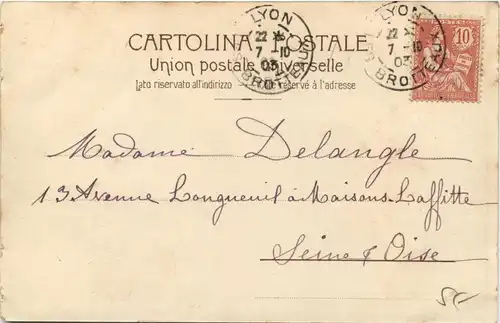 LYON
22 7 -10 03
BROTTEAUX
LYON
7 -10 03
BROTTEAUX
10
CARTOLINA POSTALE
Union postale universelle
Lato riservato all'indirizzo réservé à l'adresse
Madame Delangle
13 Avenue Longueuil à Maisons Laffitte
Seine & Oise